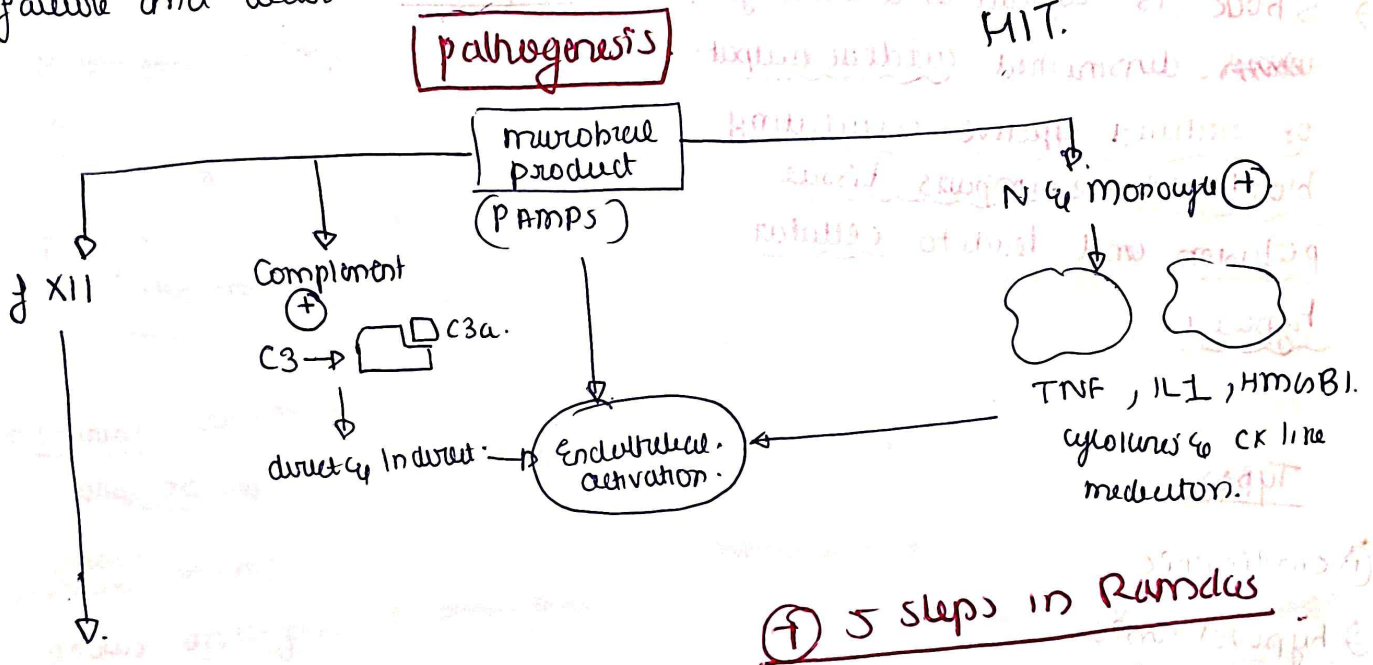 failure and
HIT.
pathogenesis
microbial
product
(PAMPs)
f XII
Complement
+
C3 → C3a.
direct & Indirect.
Endothelial.
activation.
N & monocyte +
TNF, IL1, HMGB1.
cytokines & CK line
mediators.
+ 5 steps in Ramdas